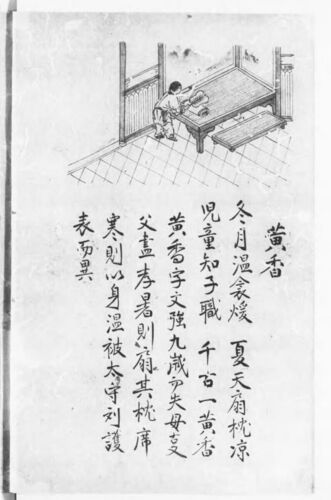 黄香
冬月温衾煖 夏天扇枕凉
児童知子職 千古一黄香
黄香字文強九歳而失母叓
父盡孝暑則扇其枕席
寒則以身温被太守刘護
表而異